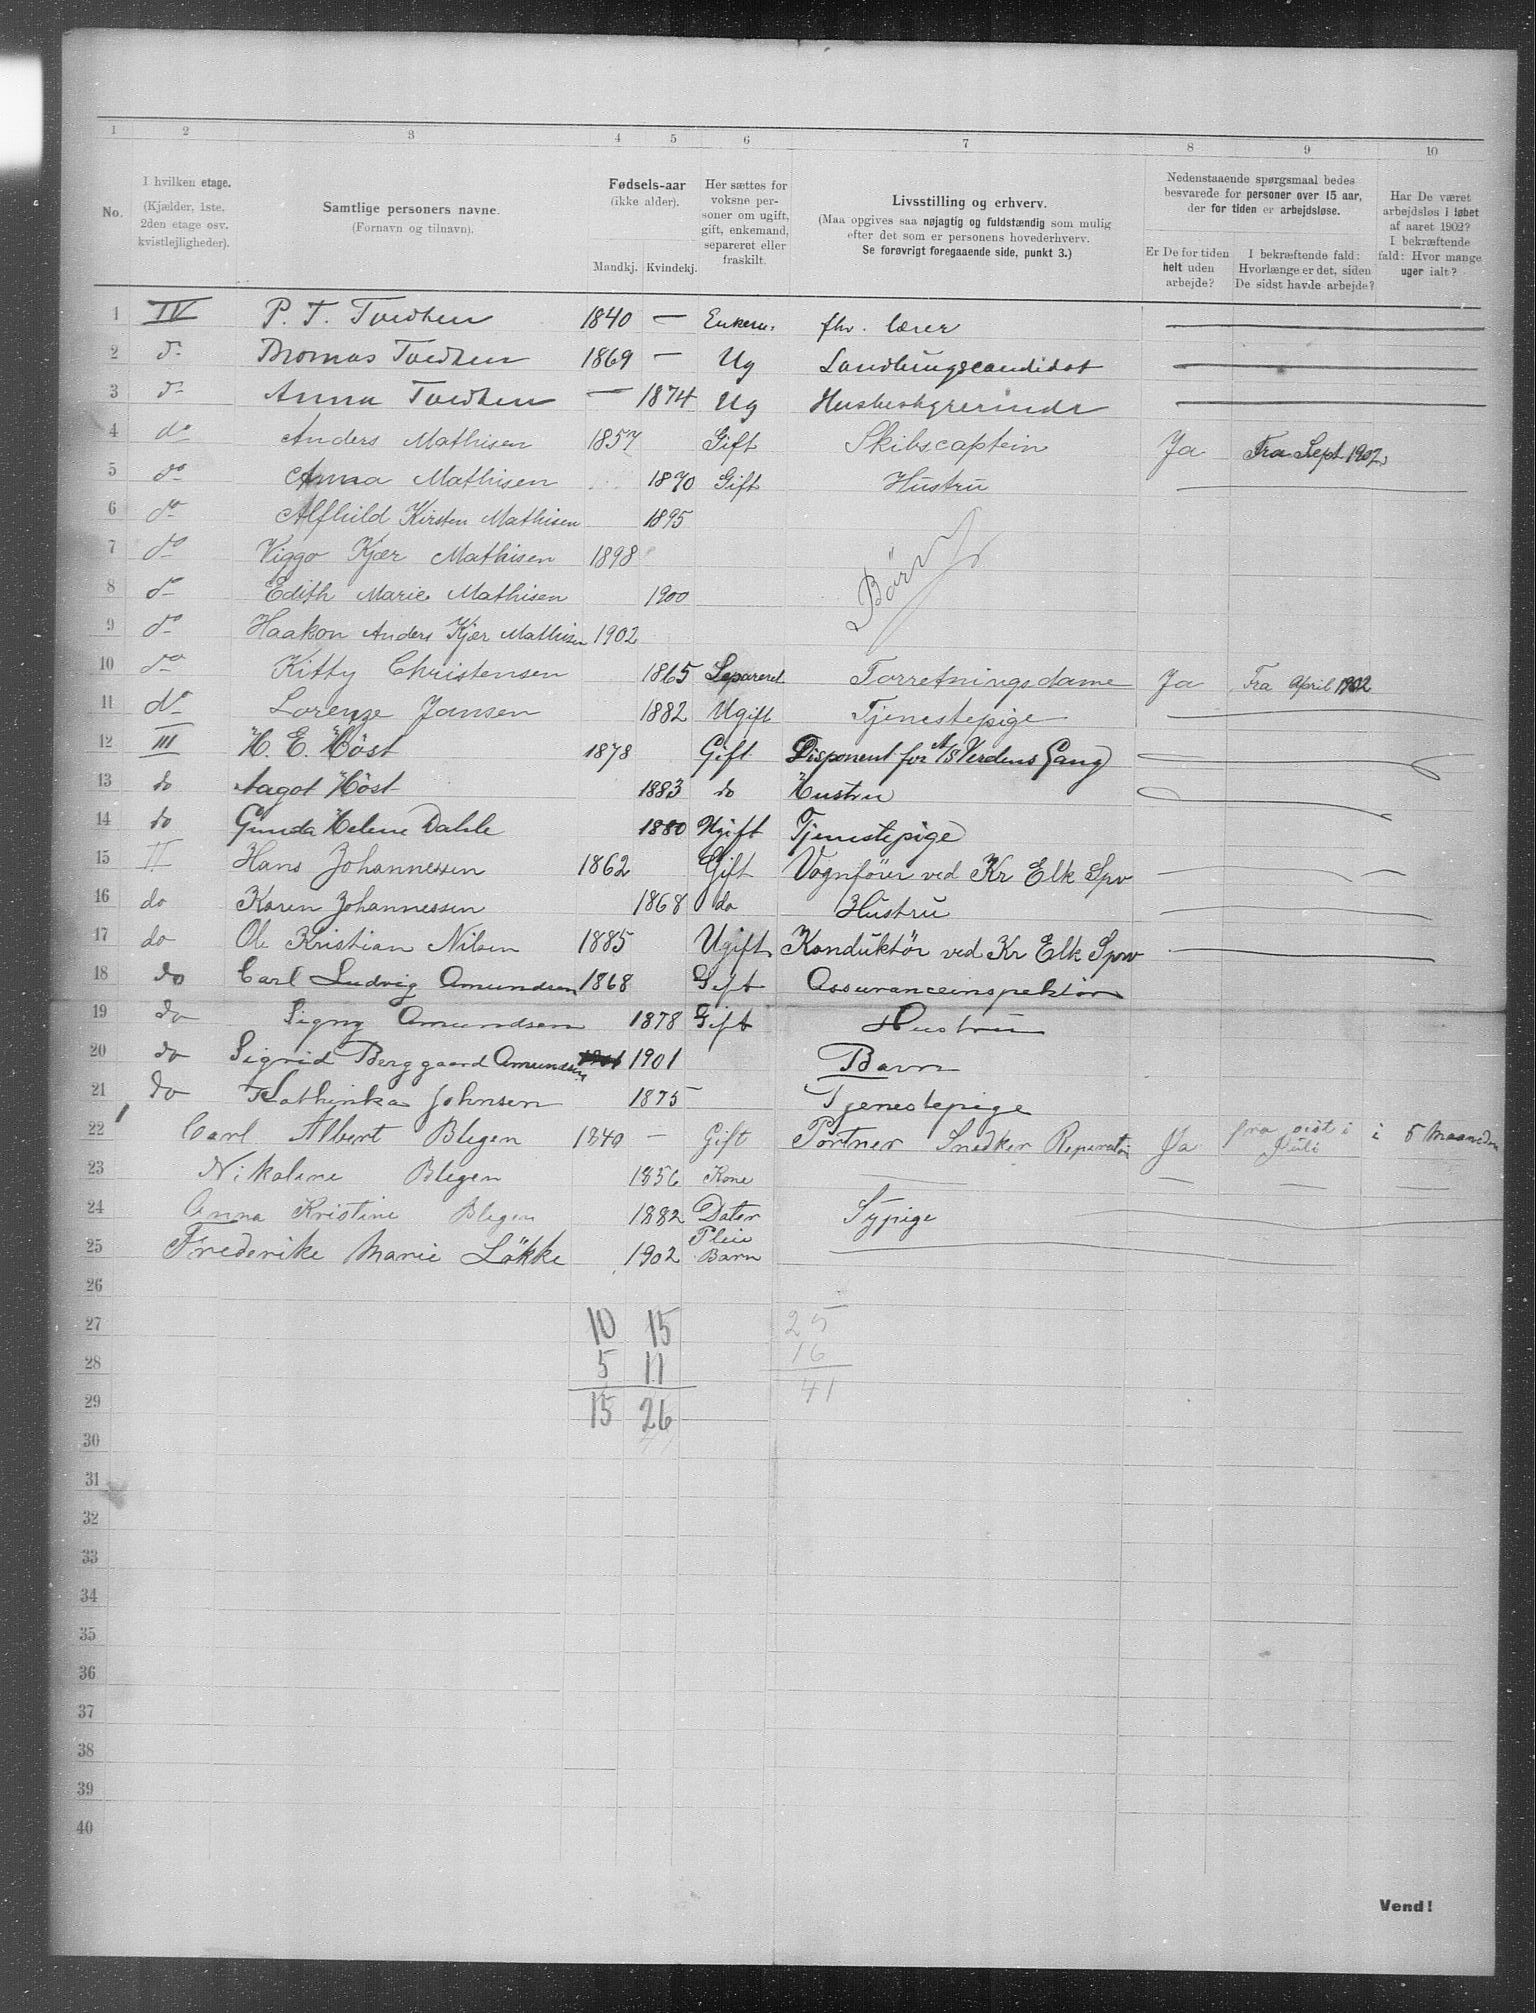 1 2 3 4 5 6 7 8 9 10
No.
I hvilken etage.
(Kjælder, 1ste.
2den etage osv.
kvistlejligheder).
Samtlige personers navne.
(Fornavn og tilnavn).
Fødsels-aar
(ikke alder).
Mandkj. Kvindekj.
Her sættes for
voksne per-
soner om ugift,
gift, enkemand,
separeret eller
fraskilt.
Livsstilling og erhverv.
(Maa opgives saa nøjagtig og fuldstændig som mulig
efter det som er personens hovederhverv.
Se forøvrigt foregaaende side, punkt 3.)
Nedenstaaende spørgsmaal bedes
besvarede for personer over 15 aar,
der for tiden er arbejdsløse.
Er De for tiden
helt uden
arbejde?
I bekræftende fald:
Hvorlænge er det, siden
De sidst havde arbejde?
Har De været
arbejdsløs i løbet
af aaret 1902?
I bekræftende
fald: Hvor mange
uger ialt?
1 IV P. T. Tvedten 1840 — Enkem. fhv. lærer
2 do Thomas Tvedten 1869 — Ug Landbrugscandidat
3 do Anna Tvedten — 1874 Ug Husbestyrerinde
4 do Anders Mathisen 1857 Gift Skibscaptein Ja Fra Sept 1902
5 do Anna Mathisen 1870 Gift Hustru
6 do Alfhild Kirsten Mathisen 1895
7 do Viggo Kjær Mathisen 1898 Börn
8 do Edith Marie Mathisen 1900
9 do Haakon Anders Kjær Mathisen 1902
10 do Kitty Christensen 1865 Separeret Forretningsdame Ja Fra April 1902
11 do Lorenze Jansen 1882 Ugift Tjenestepige
12 III H. E. Höst 1878 Gift Disponent for A/S Verdens Gang
13 do Aagot Höst 1883 do Hustru
14 do Gunda Helene Dahle 1880 Ugift Tjenestepige
15 II Hans Johannessen 1862 Gift Vognförer ved Kr Elk Spv
16 do Karen Johannessen 1868 do Hustru
17 do Ole Kristian Nilsen 1885 Ugift Konduktör ved Kr Elk Spv
18 do Carl Ludvig Amundsen 1868 Gift Assuranceinspektör
19 do Signy Amundsen 1878 Gift Hustru
20 do Sigrid Berggaard Amundsen 1901 1901 Barn
21 do Kathinka Johnsen 1875 Tjenestepige
22 Carl Albert Blegen 1840 — Gift Portner Snedker Reperatör Ja fra sist i Juli i 5 Maaneder
23 Nikoline Blegen 1856 Kone — — —
24 Anna Kristine Blegen 1882 Dater Sypige
25 Frederike Marie Lökke 1902 Pleie Barn
26
27 10 15 25
28 5 11 16
29 15 26 41
30
31
32
33
34
35
36
37
38
39
40
Vend!